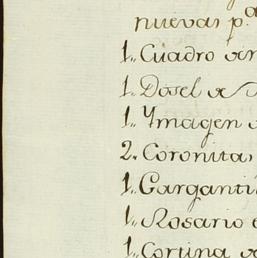 nuevas p.a
1,, Cuadro
1,, Dosel
1,, Ymagen
2,, Coronitas
1,, Garganti
1,, Rosario
1,, Cortina